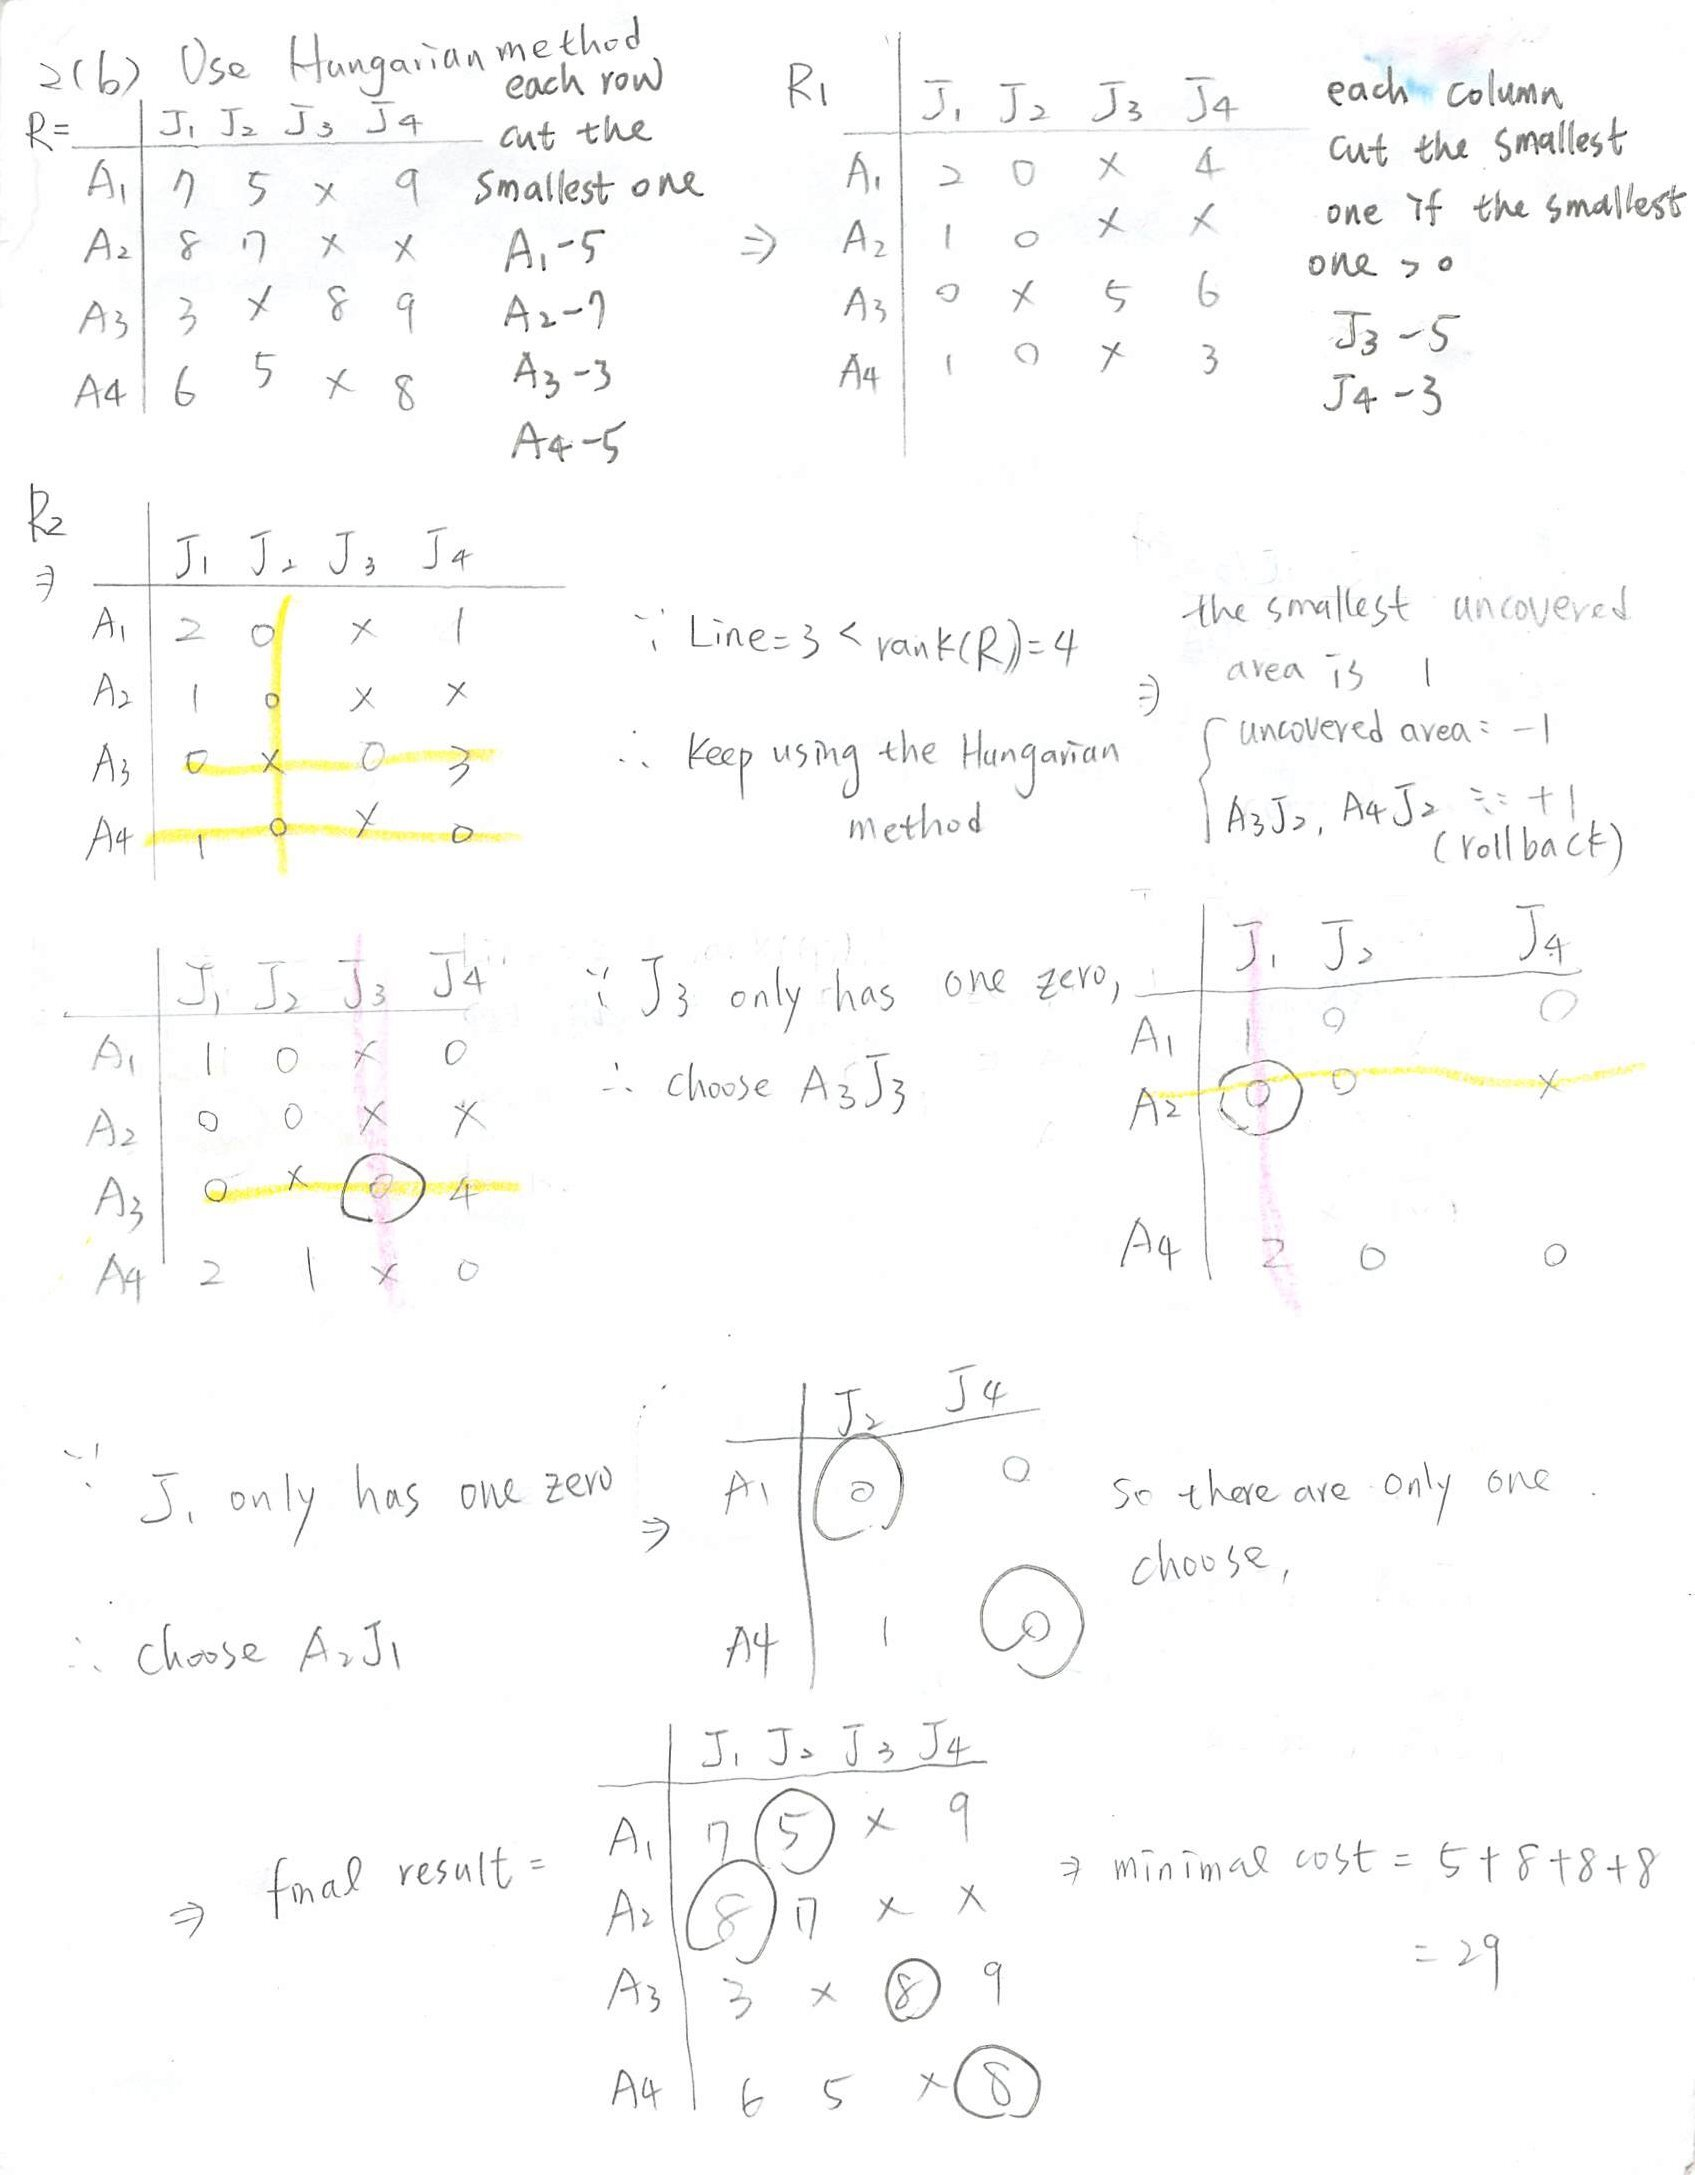 2(b) Use Hungarian method
each row
cut the
smallest one
A1-5
A2-7
A3-3
A4-5
R= J1 J2 J3 J4
A1 7 5 x 9
A2 8 7 x x
A3 3 x 8 9
A4 6 5 x 8
⇒
R1 J1 J2 J3 J4
A1 2 0 x 4
A2 1 0 x x
A3 0 x 5 6
A4 1 0 x 3
each column
cut the smallest
one if the smallest
one > 0
J3 -5
J4 -3
R2
⇒
J1 J2 J3 J4
A1 2 0 x 1
A2 1 0 x x
A3 0 x 0 3
A4 1 0 x 0
∵ Line=3 < rank(R)=4
∴ keep using the Hungarian
method
⇒
the smallest uncovered
area is 1
uncovered area: -1
A3J2, A4J2 : +1
(rollback)
J1 J2 J3 J4
A1 1 0 x 0
A2 0 0 x x
A3 0 x 0 4
A4 2 1 x 0
∵ J3 only has one zero,
∴ choose A3J3
J1 J2 J4
A1 1 0 0
A2 0 0 x
A4 2 0 0
∵ J1 only has one zero
∴ choose A2J1
⇒
J2 J4
A1 0 0
A4 1 0
so there are only one
choose,
⇒ final result =
J1 J2 J3 J4
A1 7 5 x 9
A2 8 7 x x
A3 3 x 8 9
A4 6 5 x 8
⇒ minimal cost = 5+8+8+8
= 29